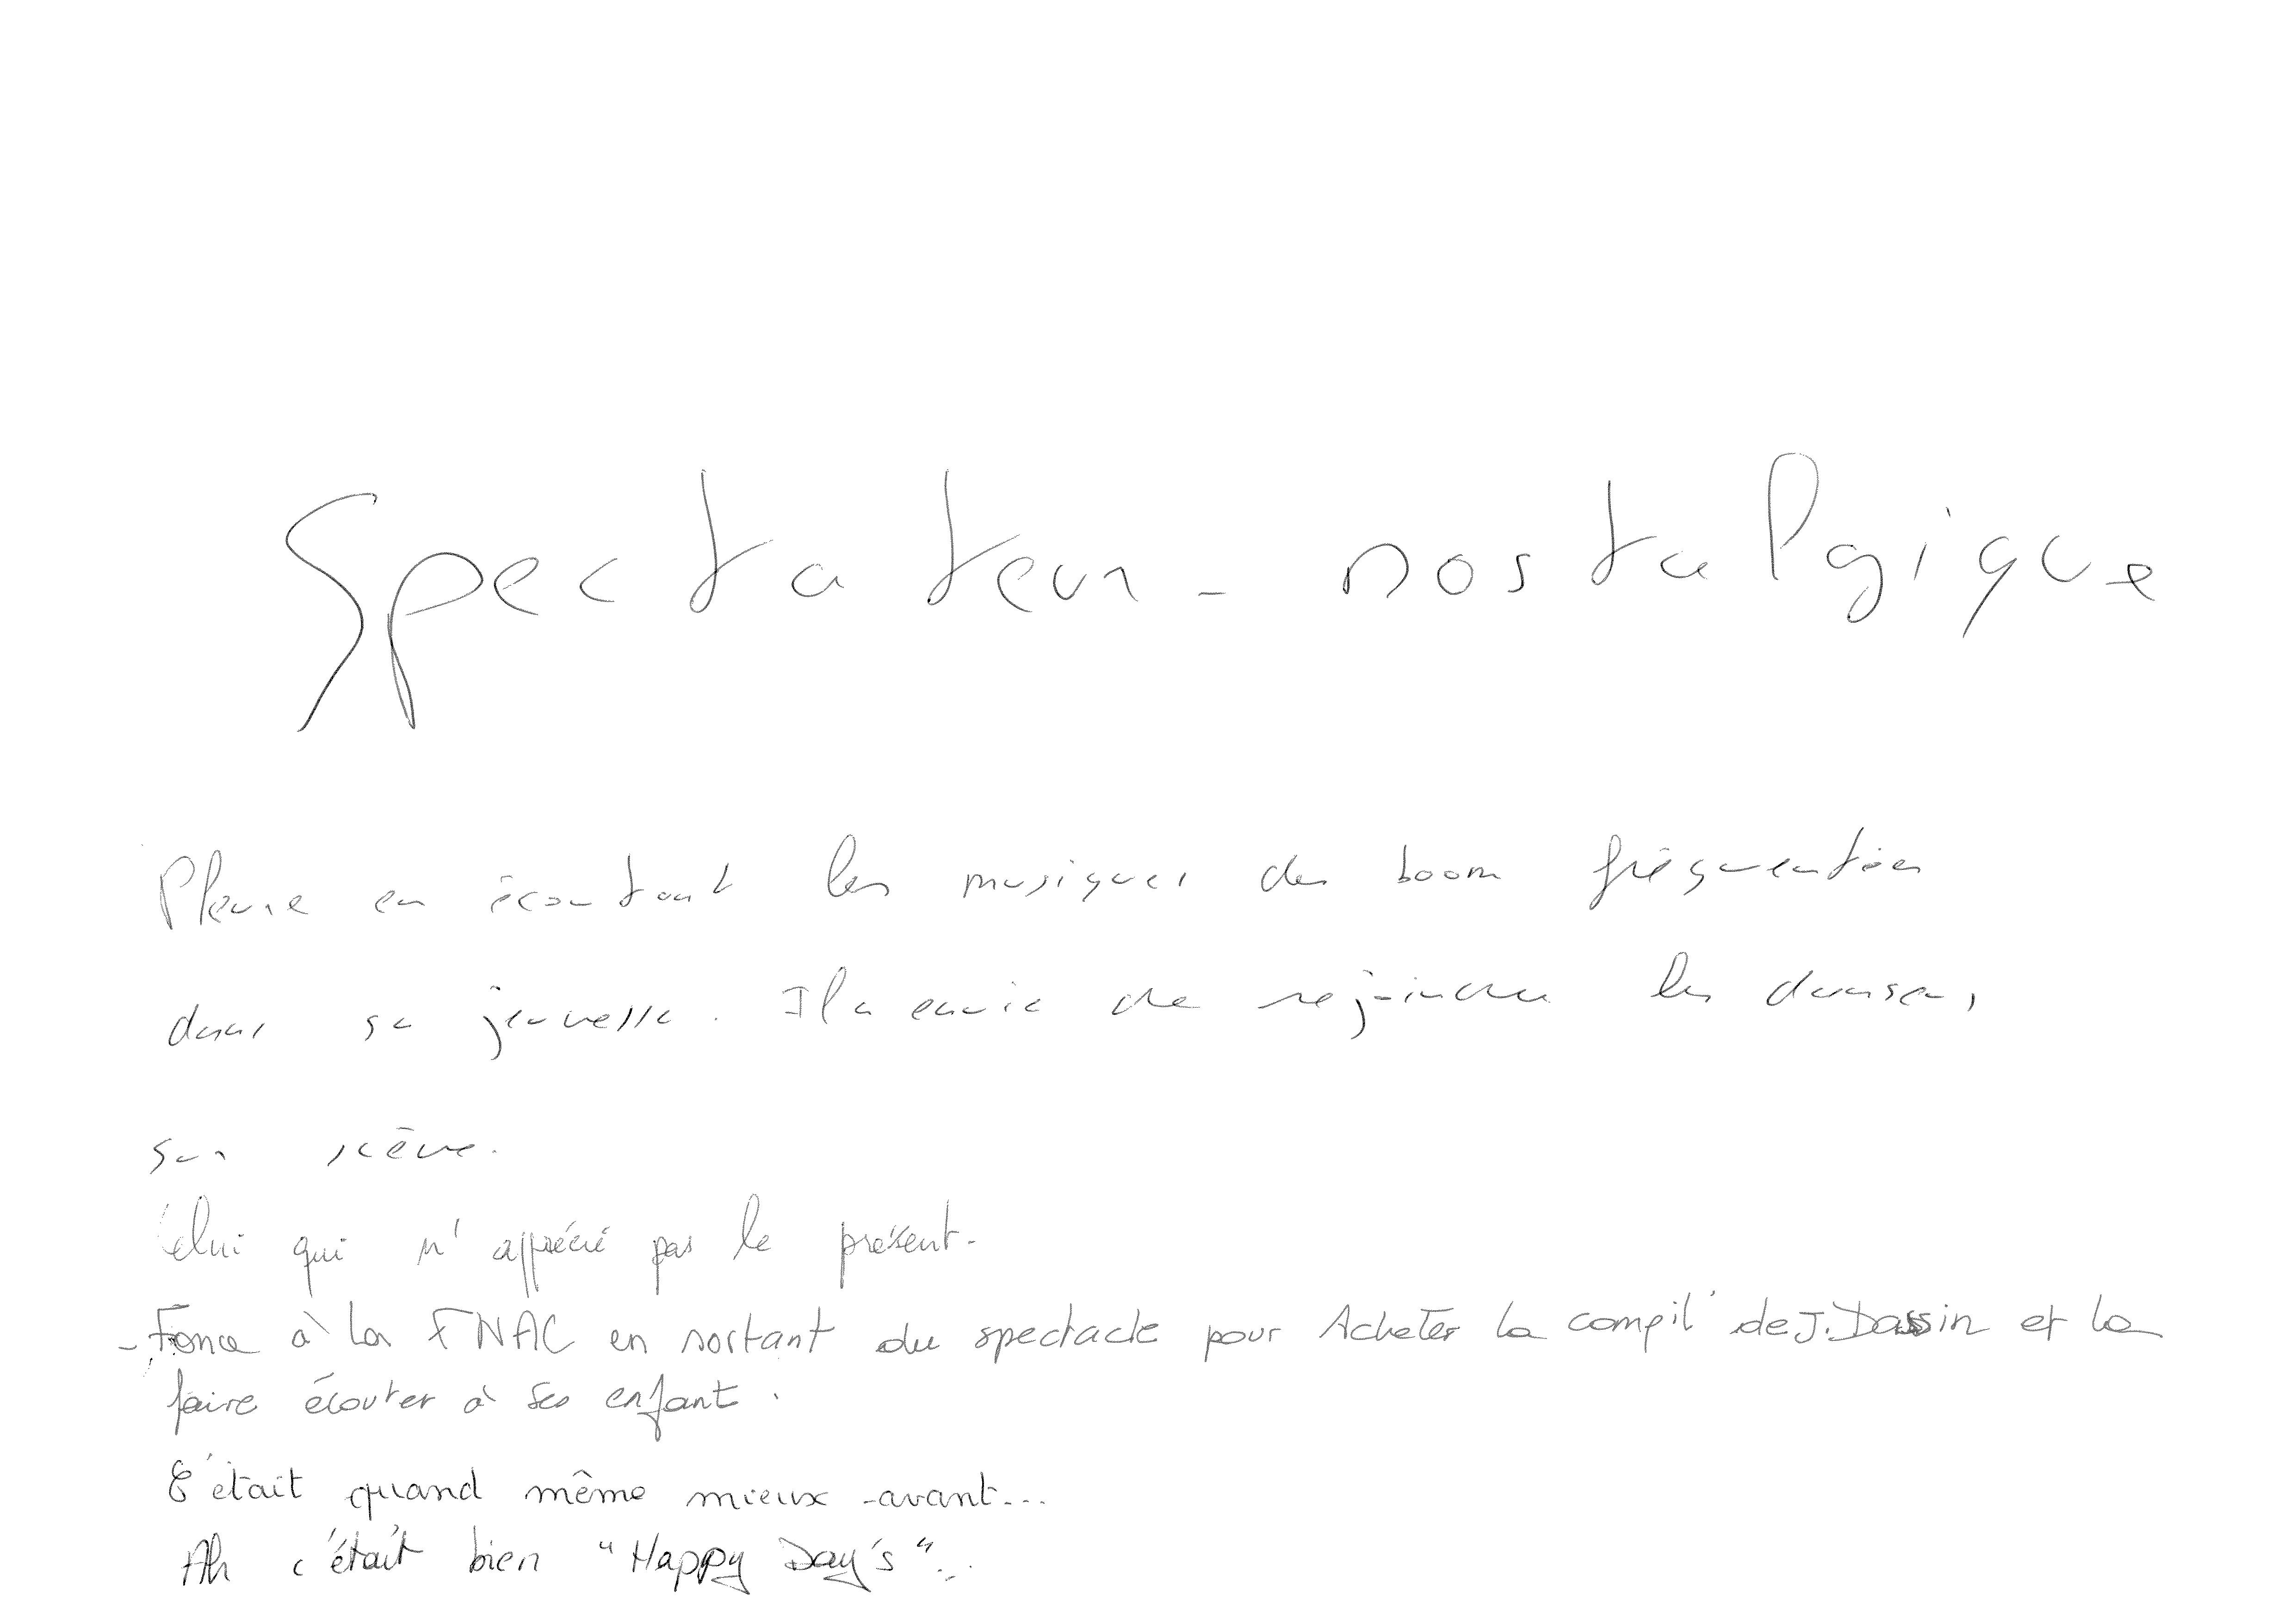 Spectateur - nostalgique
Pleure en écoutant les musiques des boom fréquentées
dans sa jeunesse. Il a envie de rejoindre les danseurs
sur scène.
Celui qui n'apprécié pas le présent.
- Fonce à la FNAC en sortant du spectacle pour Acheter la compil' de J. Dassin et la
faire écouter à ses enfant.
C'était quand même mieux avant...
Ah c'était bien "Happy Day's"...